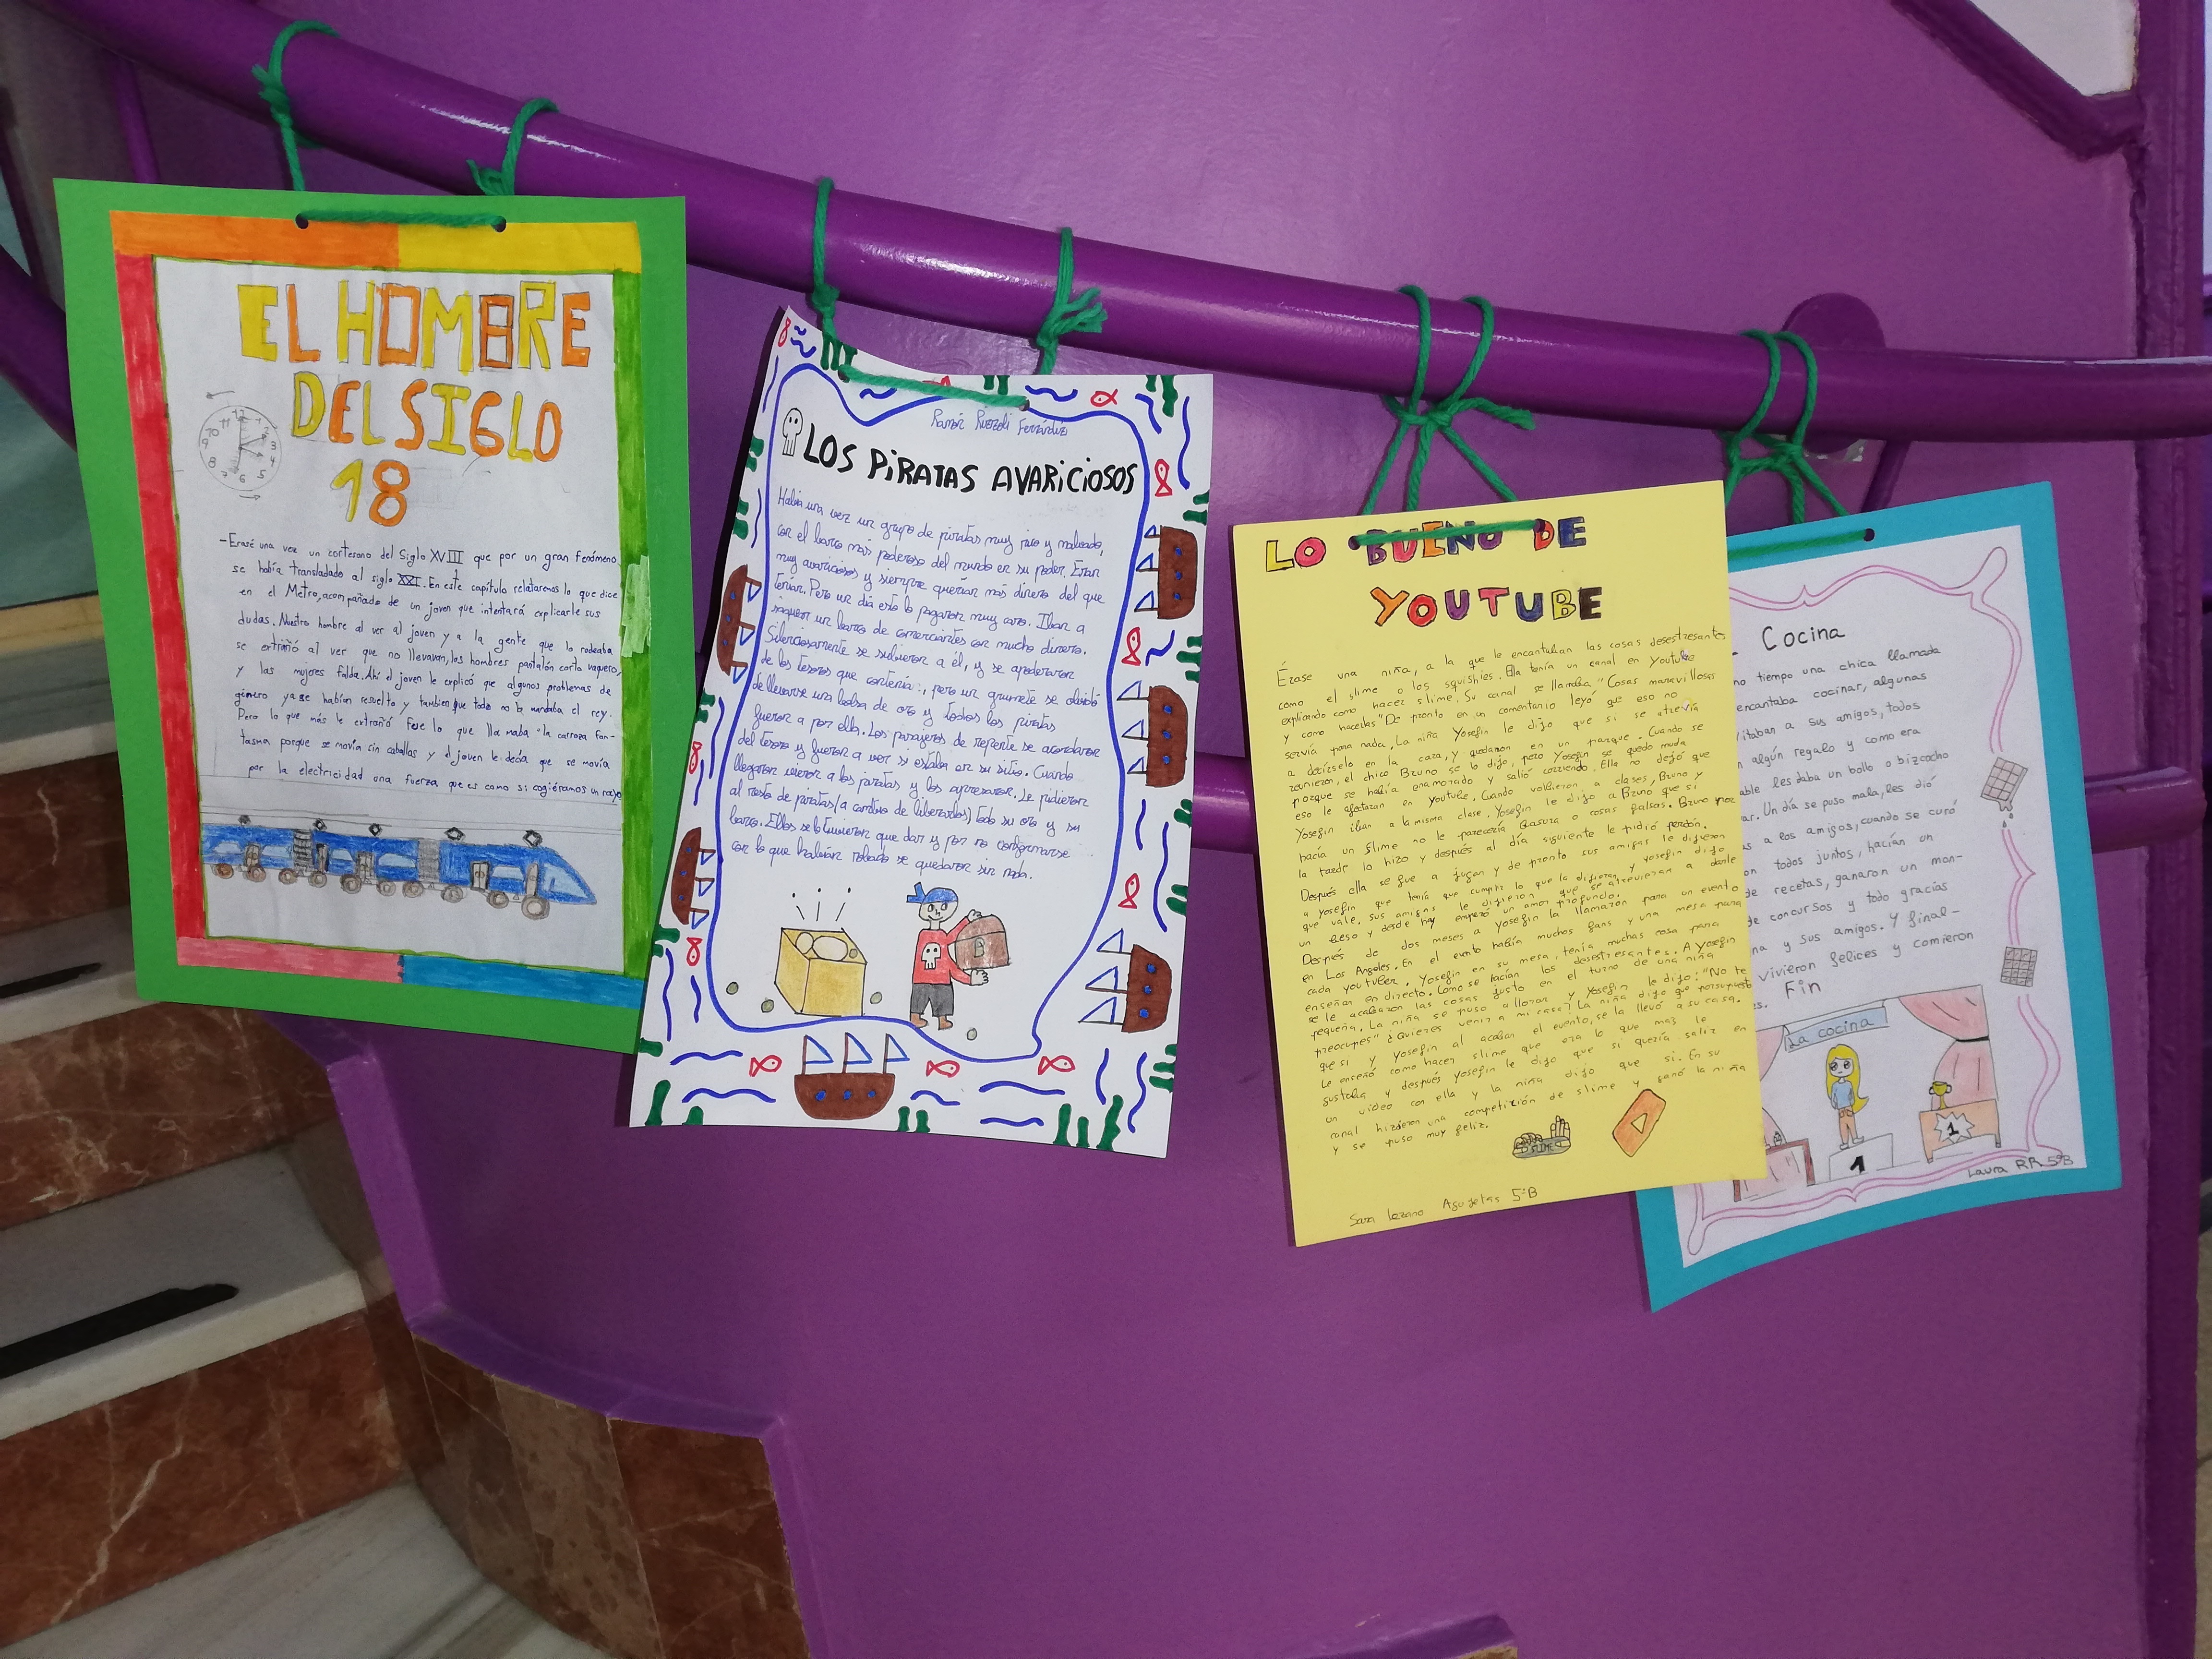 EL HOMBRE
DEL SIGLO
18
12
1
2
3
4
5
6
7
8
9
10
11
-Erasé una vez un cortesano del Siglo XVIII que por un gran Fenómeno
se había transladado al siglo XXI. En este capítulo relataremos lo que dice
en el Metro, acompañado de un joven que intentará explicarle sus
dudas. Nuestro hombre al ver al joven y a la gente que lo rodeaba
se extrañó al ver que no llevavan, los hombres pantalón corto vaquero,
y las mujeres falda. Ahí el joven le explicó que algunos problemas de
género ya se habían resuelto y tambien que todo no lo mandaba el rey.
Pero lo que más le extrañó Fue lo que lla maba "la carroza Fan-
tasma porque se movía sin caballos y el joven le decía que se movía
por la electricidad una fuerza que es como si cogiéramos un rayo
Ramón
LOS PiRATAS AVARiCiOSOS
Había una vez un grupo de piratas muy rico y malvado,
con el barco más poderoso del mundo en su poder. Eran
muy avariciosos y siempre querían más dinero del que
tenían. Pero un día esto lo pagaron muy caro. Iban a
saquear un barco de comerciantes con mucho dinero.
Silenciosamente se subieron a él, y se apoderaron
de los tesoros que contenía, pero un grumete se olvidó
de llevarse una bolsa de oro y todos los piratas
fueron a por ella. Los pasajeros de repente se acordaron
del tesoro y fueron a ver si estaba en su sitio. Cuando
llegaron vieron a los piratas y los apresaron. Le pidieron
al resto de piratas (a cambio de liberarlos) todo su oro y su
barco. Ellos se lo tuvieron que dar y por no conformarse
con lo que habían robado se quedaron sin nada.
LO BUENO DE
YOUTUBE
Érase una niña, a la que le encantaban las cosas desestresantes
como el slime o los squishies. Ella tenía un canal en Youtube
explicando como hacer slime. Su canal se llamaba "Cosas maravillosas
y como hacerlas" De pronto en un comentario leyó que eso no
servía para nada. La niña Yosefin le dijo que si se atrevía
a decírselo en la cara, y quedaron en un parque. Cuando se
reunieron, el chico Bruno se lo dijo, pero Yosefin se quedo muda
porque se había enamorado y salió corriendo. Ella no dejó que
eso le afectaran en youtube. Cuando volvieron a clases, Bruno y
Yosefin iban a la misma clase. Yosefin le dijo a Bruno que si
hacía un slime no le parecería basura o cosas falsas. Bruno por
la tarde lo hizo y después al día siguiente le pidió perdón.
Después ella se fue a jugar y de pronto sus amigas le dijeron
a yosefin que tenía que cumplir lo que le dijeran y yosefin dijo
que vale. sus amigas le dijeron que se atrevieran a darle
un beso y desde hay empezó un amor profundo.
Después de dos meses a Yosefin la llamaron para un evento
en Los Angeles. En el evento había muchos fans y una mesa para
cada youtuber. Yosefin en su mesa, tenía muchas cosa para
enseñar en directo. Como se hacían los desestresantes. A Yosefin
se le acabaron las cosas justo en el turno de una niña
pequeña. La niña se puso a llorar y Yosefin le dijo: "No te
preocupes" ¿Quieres venir a mi casa? La niña dijo que porsupuesto
que si y Yosefin al acabar el evento, se la llevó a su casa.
Le enseñó como hacer slime que era lo que mas le
gustaba y después Yosefin le dijo que si quería salir en
un video con ella y la niña dijo que si. En su
canal hicieron una competición de slime y ganó la niña
y se puso muy feliz.
SLIME
Sara Lozano Agujetas 5ºB
Cocina
tiempo una chica llamada
encantaba cocinar, algunas
a sus amigos, todos
algún regalo y como era
les daba un bollo o bizcocho
Un día se puso mala, les dió
a los amigos, cuando se curó
todos juntos, hacían un
de recetas, ganaron un mon-
de concursos y todo gracias
y sus amigos. Y final-
vivieron felices y comieron
Fin
La cocina
1
1
Laura RR 5ºB